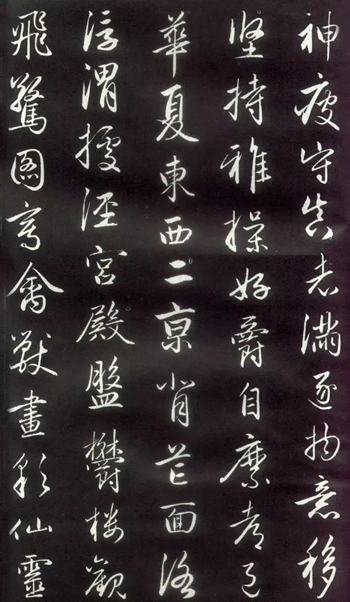 神疲守真志滿逐物意移
堅持雅操好爵自縻都邑
華夏東西二京背芒面洛
浮渭據涇宮殿盤鬱樓觀
飛驚圖寫禽獸畫彩仙靈